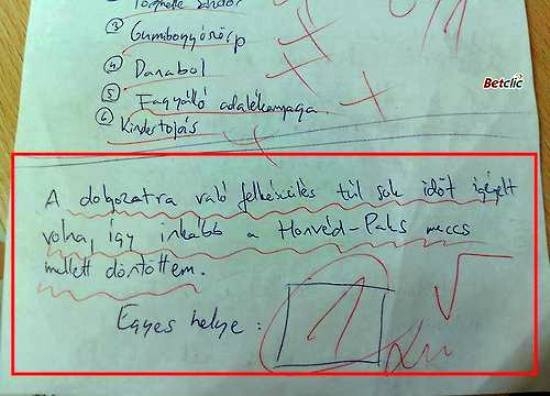 ③ Gumibogyószörp
Betclic
④ Danabol
⑤ Fagyálló adalékanyaga.
⑥ Kindertojás
A dolgozatra való felkészülés túl sok időt igényelt
volna, így inkább a Honvéd-Paks meccs
mellett döntöttem.
Egyes helye:
1